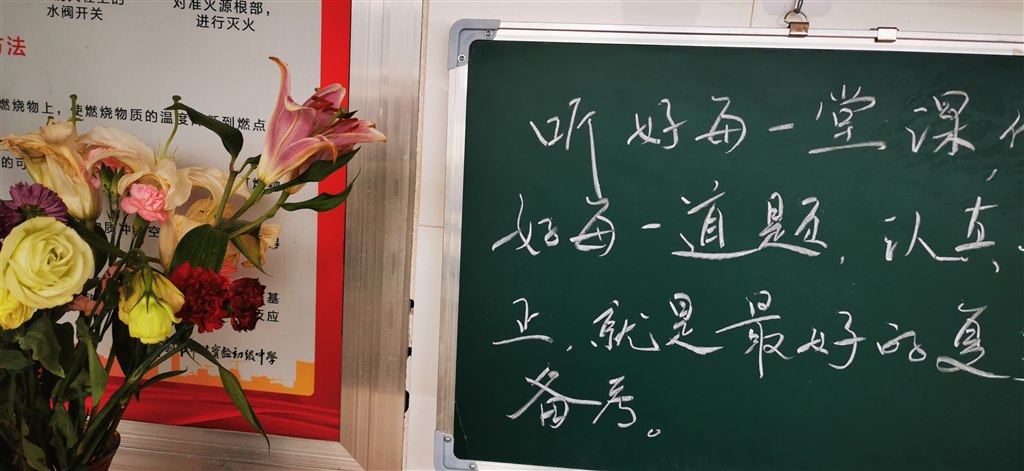 水阀开关
对准火源根部，
进行灭火
方法
燃烧物上，使燃烧物质的温度降低到燃点
的可
应
实验初级中学
听好每一堂课，
好每一道题，认真
正，就是最好的复
备考。